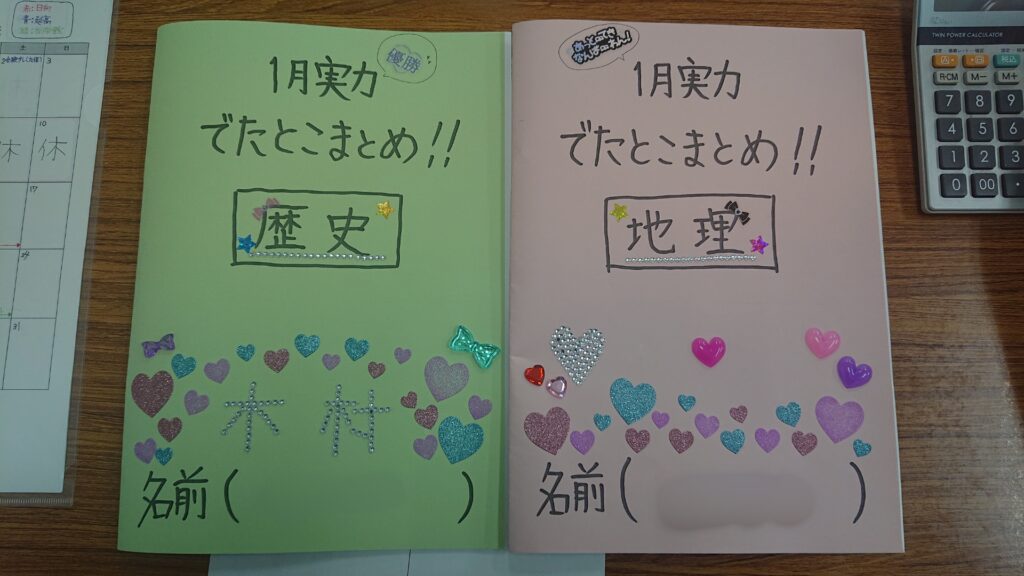 優勝
1月実力
でたとこまとめ!!
歴史
木村
名前( )
1月実力
でたとこまとめ!!
地理
名前( )
土 日
3
10
休 休
17
24
31
TWIN POWER CALCULATOR
R·CM M− M+
7 8 9
4 5 6
1 2 3
0 00 ·